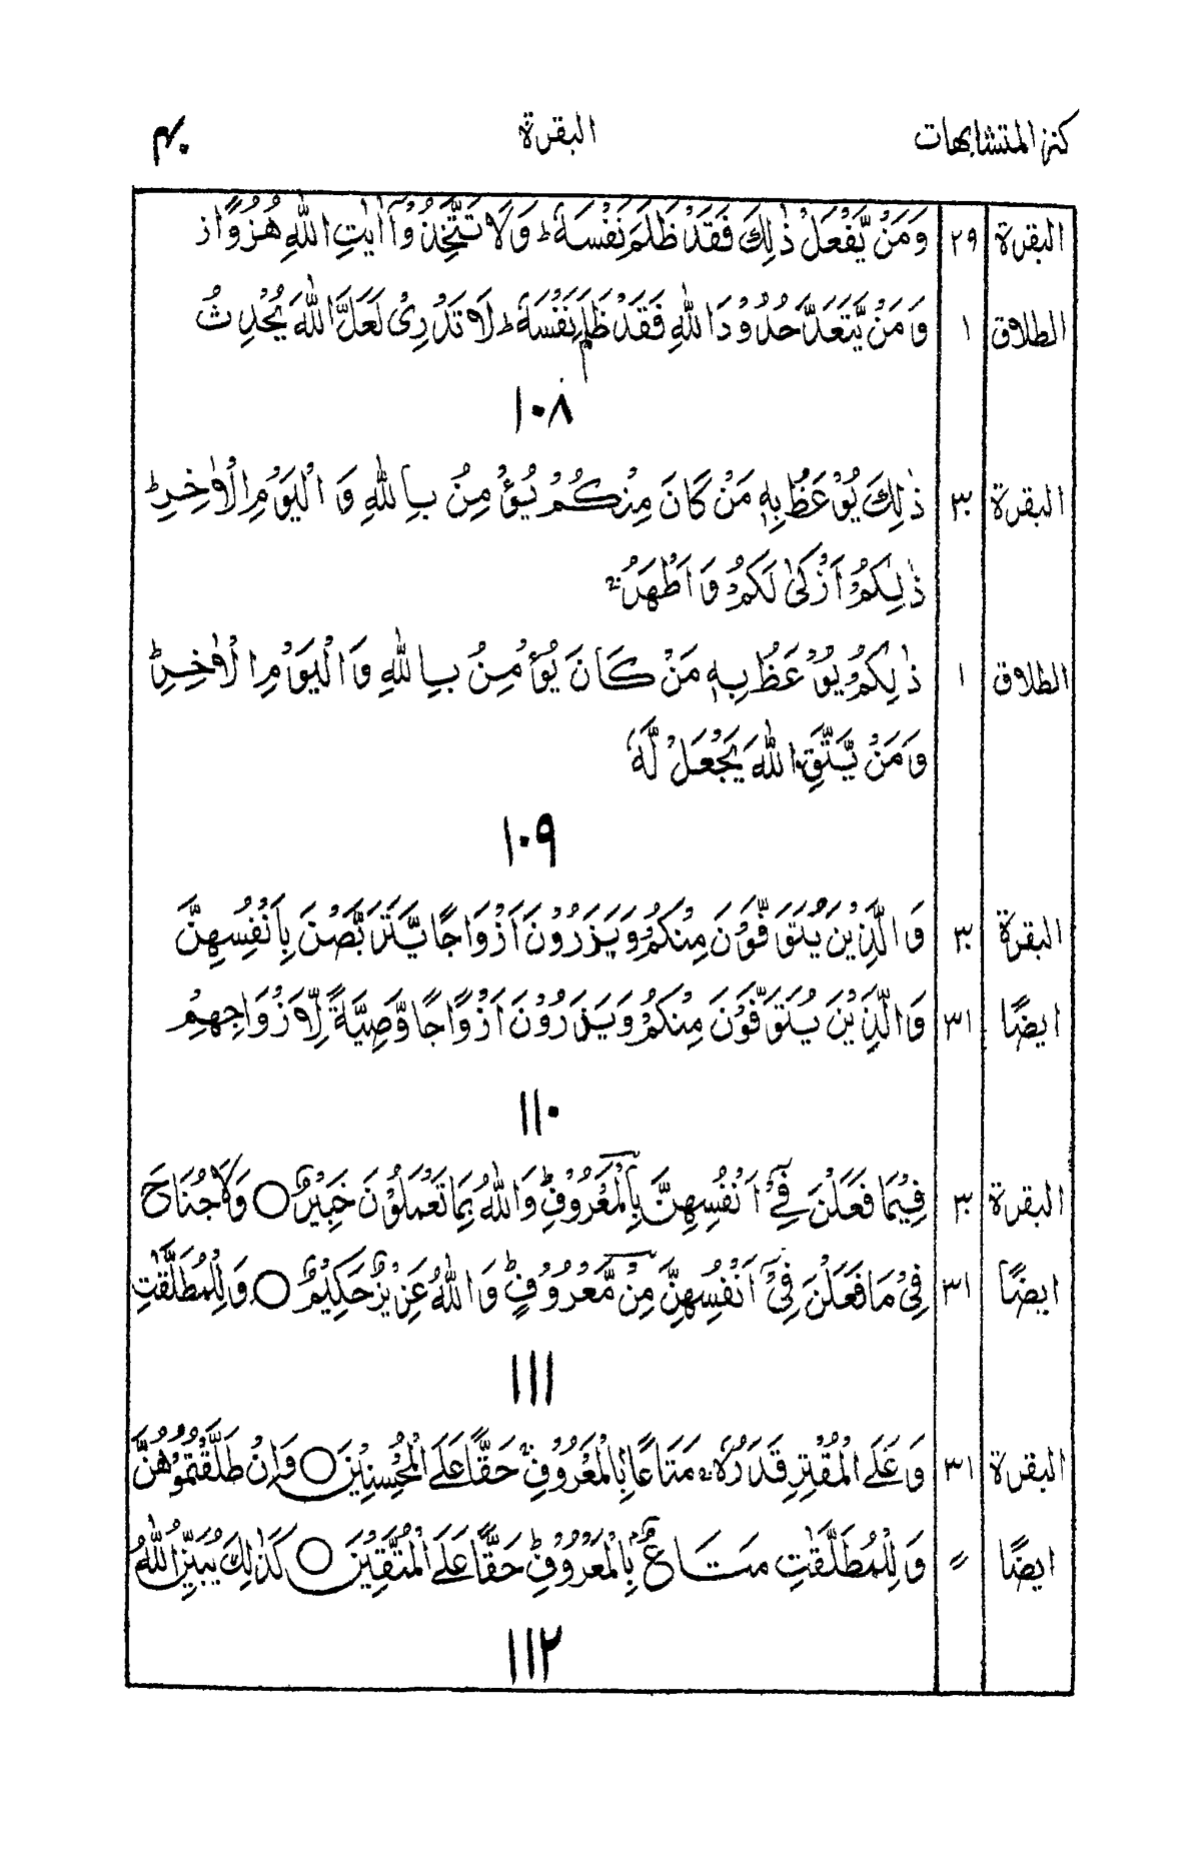 كنز المتشابهات البقرة ۴۰
البقرة ۲۹ وَمَنْ يَّفْعَلْ ذٰلِكَ فَقَدْ ظَلَمَ نَفْسَهٗ ؕ وَلَا تَتَّخِذُوْٓا اٰيٰتِ اللّٰهِ هُزُوًا ز
الطلاق ۱ وَمَنْ يَّتَعَدَّ حُدُوْدَ اللّٰهِ فَقَدْ ظَلَمَ نَفْسَهٗ ؕ لَا تَدْرِىْ لَعَلَّ اللّٰهَ يُحْدِثُ
۱۰۸
البقرة ۳۰ ذٰلِكَ يُوْعَظُ بِهٖ مَنْ كَانَ مِنْكُمْ يُؤْمِنُ بِاللّٰهِ وَالْيَوْمِ الْاٰخِرِ ؕ
ذٰلِكُمْ اَزْكٰى لَكُمْ وَاَطْهَرُ ؕ
الطلاق ۱ ذٰلِكُمْ يُوْعَظُ بِهٖ مَنْ كَانَ يُؤْمِنُ بِاللّٰهِ وَالْيَوْمِ الْاٰخِرِ ؕ
وَمَنْ يَّتَّقِ اللّٰهَ يَجْعَلْ لَّهٗ
۱۰۹
البقرة ۳۰ وَالَّذِيْنَ يُتَوَفَّوْنَ مِنْكُمْ وَيَذَرُوْنَ اَزْوَاجًا يَّتَرَبَّصْنَ بِاَنْفُسِهِنَّ
ايضًا ۳۱ وَالَّذِيْنَ يُتَوَفَّوْنَ مِنْكُمْ وَيَذَرُوْنَ اَزْوَاجًا وَّصِيَّةً لِّاَزْوَاجِهِمْ
۱۱۰
البقرة ۳۰ فِيْمَا فَعَلْنَ فِىْٓ اَنْفُسِهِنَّ بِالْمَعْرُوْفِ ؕ وَاللّٰهُ بِمَا تَعْمَلُوْنَ خَبِيْرٌ ○ وَلَا جُنَاحَ
ايضًا ۳۱ فِىْ مَا فَعَلْنَ فِىْٓ اَنْفُسِهِنَّ مِنْ مَّعْرُوْفٍ ؕ وَاللّٰهُ عَزِيْزٌ حَكِيْمٌ ○ وَلِلْمُطَلَّقٰتِ
۱۱۱
البقرة ۳۱ وَعَلَى الْمُقْتِرِ قَدَرُهٗ ۚ مَتَاعًا بِالْمَعْرُوْفِ ۚ حَقًّا عَلَى الْمُحْسِنِيْنَ ○ وَاِنْ طَلَّقْتُمُوْهُنَّ
ايضًا ״ وَلِلْمُطَلَّقٰتِ مَتَاعٌ بِالْمَعْرُوْفِ ؕ حَقًّا عَلَى الْمُتَّقِيْنَ ○ كَذٰلِكَ يُبَيِّنُ اللّٰهُ
۱۱۲